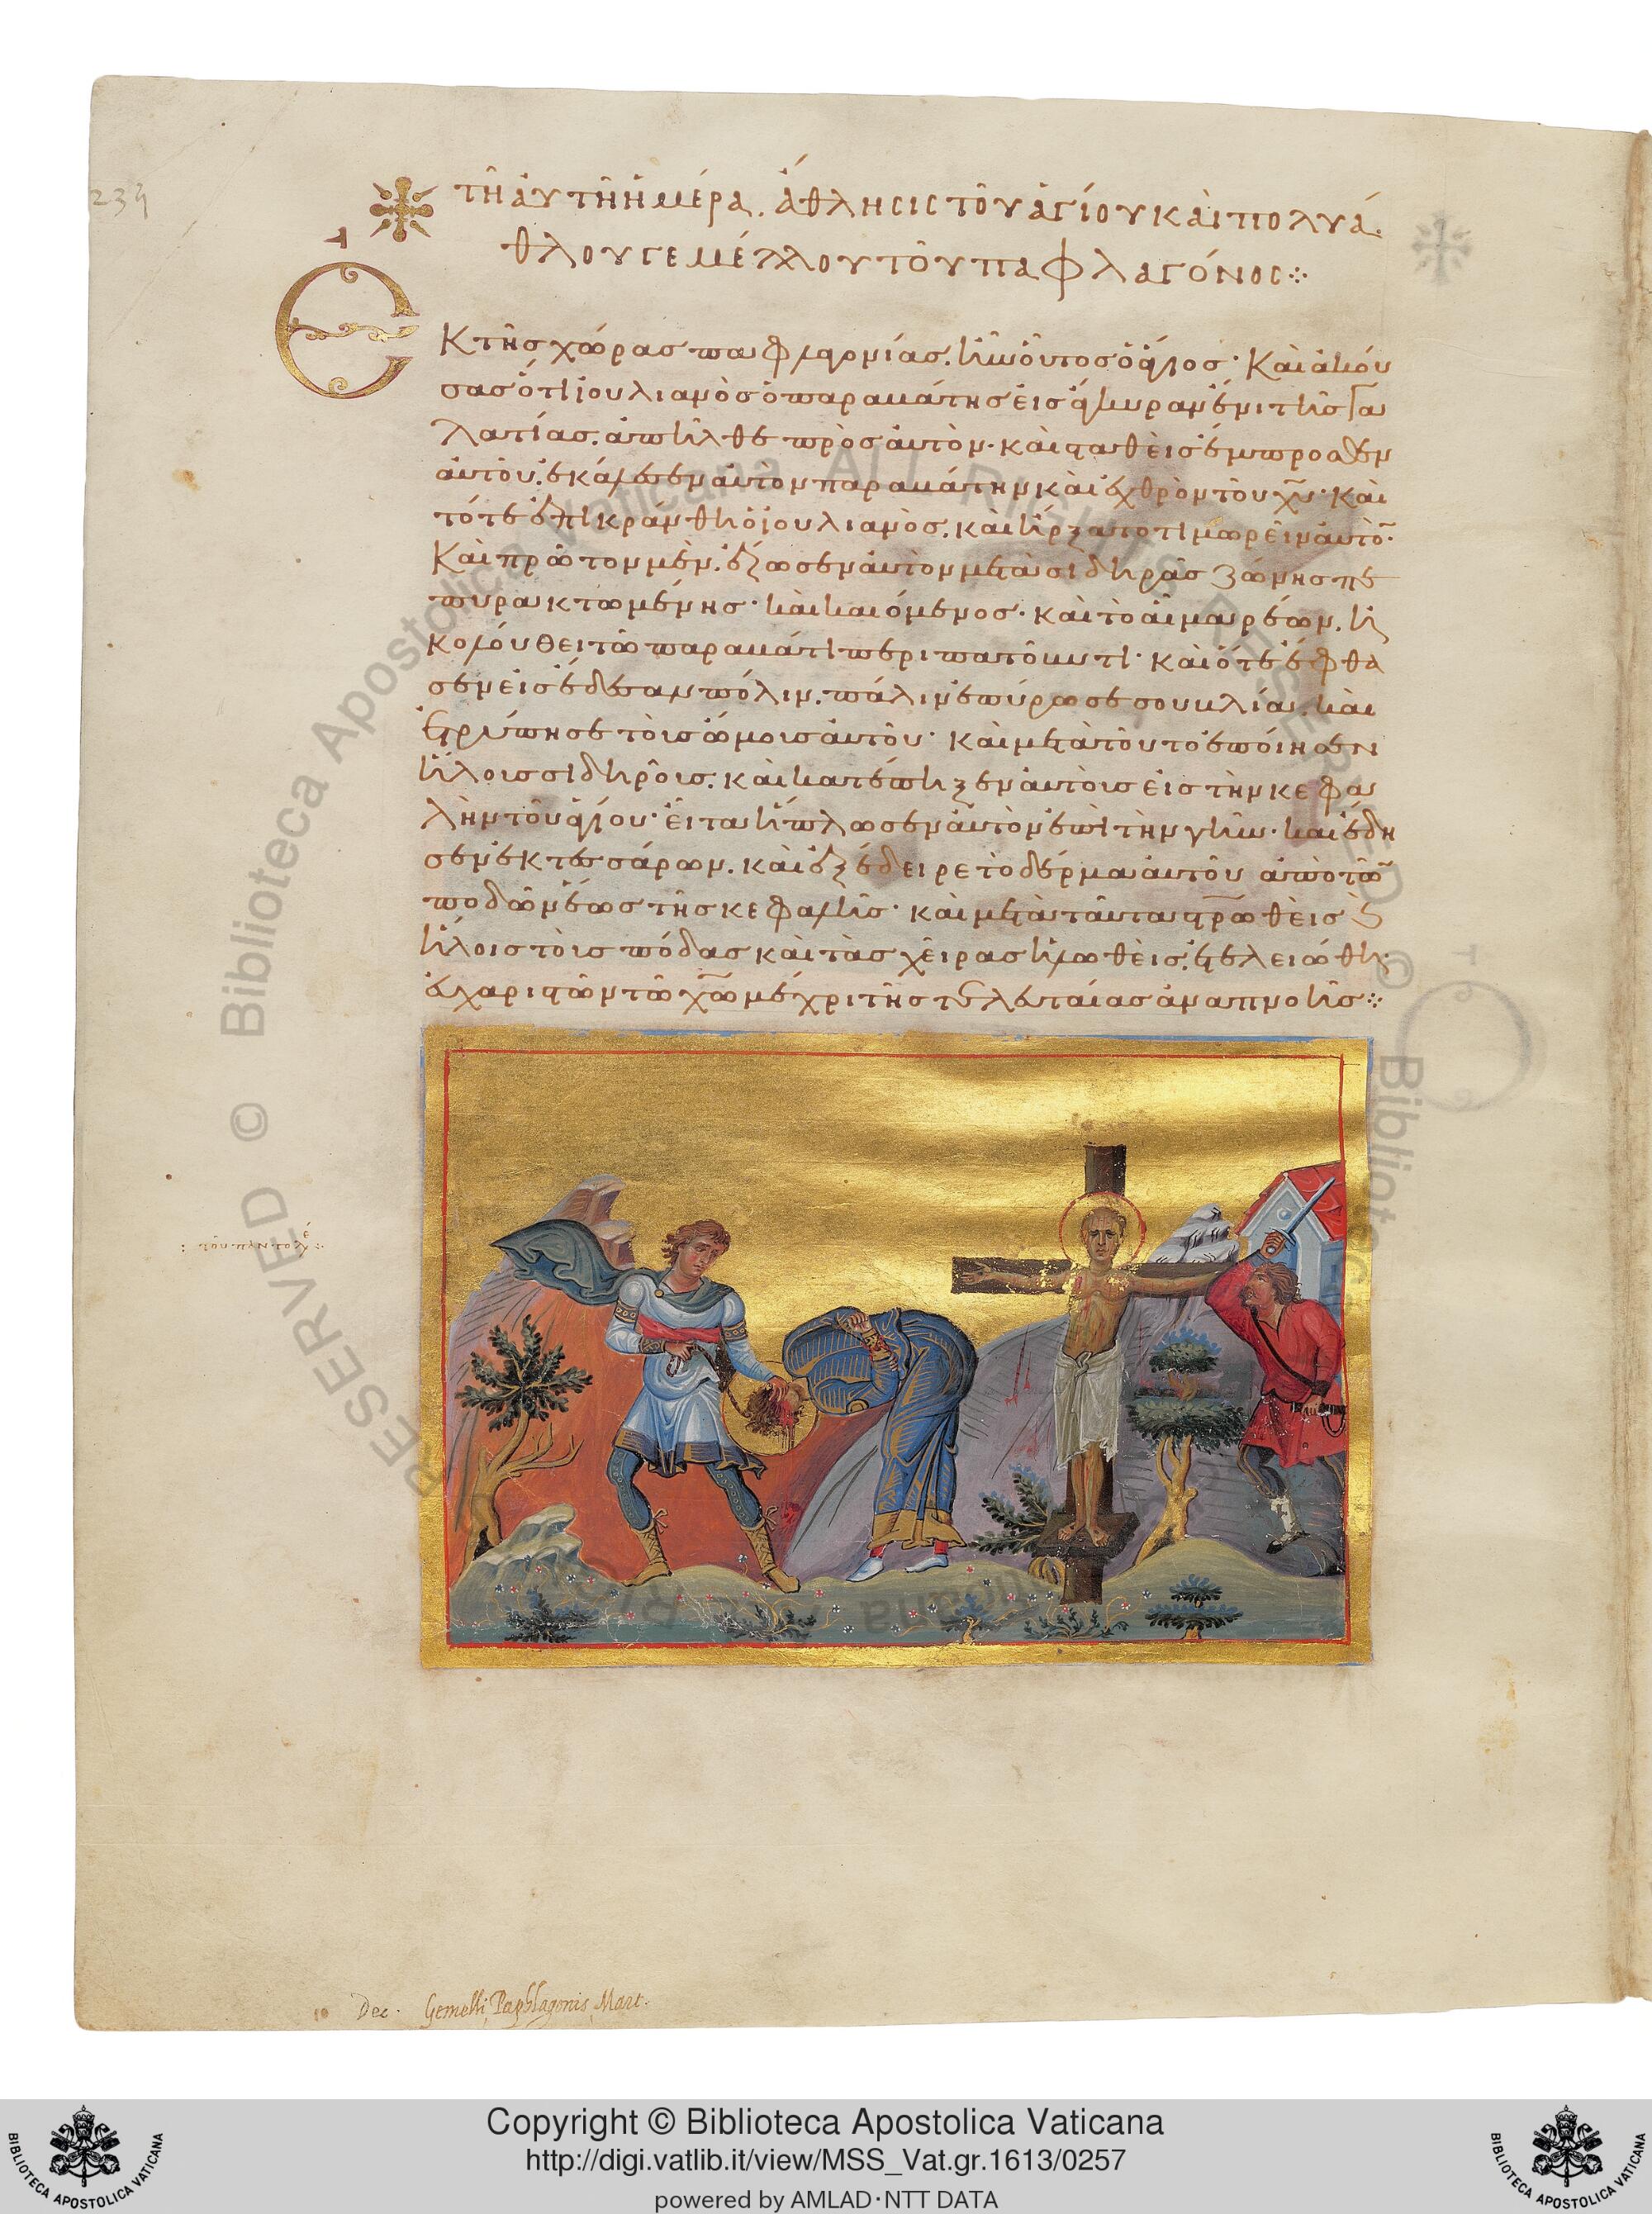 234
τῆ ἀυτῆ ἡμέρα. ἄθλησις τοῦ ἁγίου καὶ πολυά
θλου γεμέλλου τοῦ παφλαγόνος
Ἐκ τῆς χώρας παφλαγονίας. ἦν ὁυτος ὁ ἅγιος· Καὶ ἀκού
σας ὅτι ἰουλιανὸς ὁ παραβάτης εἰς ἄγκυραν ἐνι τῆς Γα
λατίας. ἀπῆλθε πρὸς ἀυτὸν· καὶ σταθεὶς ἔμπροσθεν
ἀυτοῦ. ἐκάλεσεν ἀυτὸν παραβάτην καὶ ἐχθρὸν τοῦ χυ· Καὶ
τότε ἐπικράνθη ὁ ἰουλιανὸς. καὶ ἤρξατο τιμωρεῖν ἀυτὸ·
Καὶ πρῶτον μὲν. ἔζωσεν ἀυτὸν μετὰ σιδηρᾶς ζώνης πε
πυρακτωμένης· καὶ καιόμενος· καὶ τὸ αἷμα ρέων. ἠ
κολούθει τῶ παραβάτι περιπατοῦντι· καὶ ὅτε ἔφθα
σεν εἰς ἔδεσαν πόλιν. πάλιν ἐπύρωσε σουκλία. καὶ
ἐτρύπησε τοὺς ὤμους ἀυτοῦ· καὶ μετὰ τοῦτο ἐποίησεν
ἥλους σιδηροῦς. καὶ κατέπηξεν ἀυτοὺς εἰς τὴν κεφα
λὴν τοῦ ἁγίου· εἶτα ἥπλωσεν ἀυτὸν ἐπὶ τὴν γῆν· καὶ ἔδη
σεν ἐκ τεσσάρων. καὶ ἐξέδειρε τὸ δέρμα ἀυτοῦ ἀπὸ τῶ
ποδῶν ἕως τῆς κεφαλῆς· καὶ μετὰ ταῦτα στρωθεὶς ἐ
ἥλοις τοὺς πόδας καὶ τὰς χεῖρας ἡλωθεὶς. ἐτελειώθη
ἐυχαριστῶν τῶ χω μέχρι τῆς τελευταίας ἀναπνοῆς
10 Dec. Gemelli Paphlagonis Mart.
RESERVED © Biblioteca Apostolica Vaticana ALL RIGHTS RESERVED © Biblioteca
Copyright © Biblioteca Apostolica Vaticana
http://digi.vatlib.it/view/MSS_Vat.gr.1613/0257
powered by AMLAD·NTT DATA
BIBLIOTECA APOSTOLICA VATICANA
BIBLIOTECA APOSTOLICA VATICANA